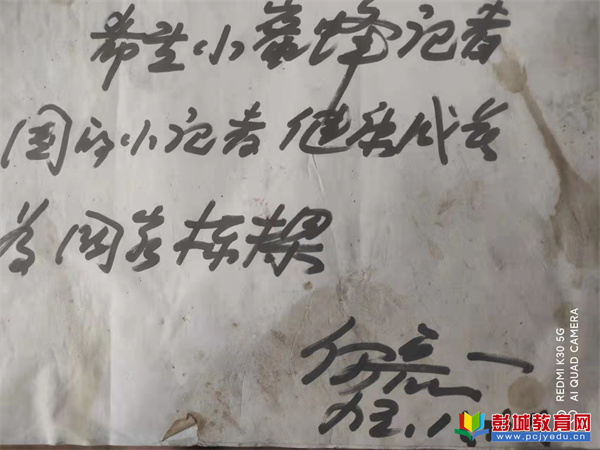 希望小蜜蜂记者
团的小记者健康成长
为国家栋梁
REDMI K30 5G
AI QUAD CAMERA
彭城教育网
www.pcjyedu.cn